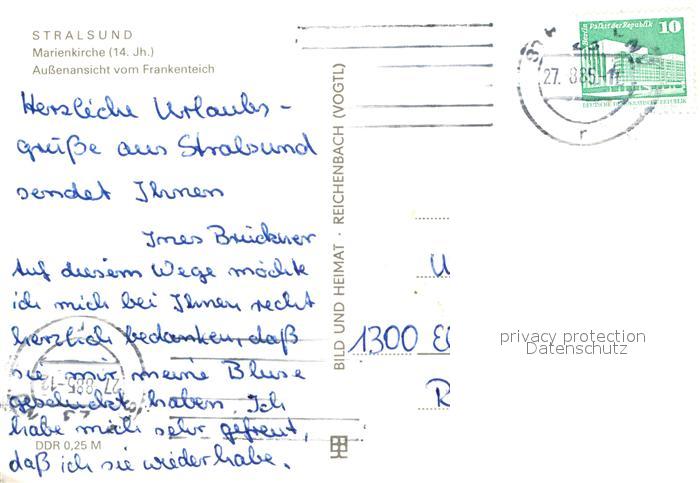 STRALSUND
Marienkirche (14. Jh.)
Außenansicht vom Frankenteich
Herzliche Urlaubs-
grüße aus Stralsund
sendet Ihnen
Ines Brückner
Auf diesem Wege möchte
ich mich bei Ihnen recht
herzlich bedanken, daß
sie mir meine Bluse
geschickt haben. Ich
habe mich sehr gefreut,
daß ich sie wiederhabe.
DDR 0,25 M
BILD UND HEIMAT · REICHENBACH (VOGTL)
27. 8.85
10
Berlin, Palast der Republik
DEUTSCHE DEMOKRATISCHE REPUBLIK
1300
privacy protection
Datenschutz
27.8.85-12